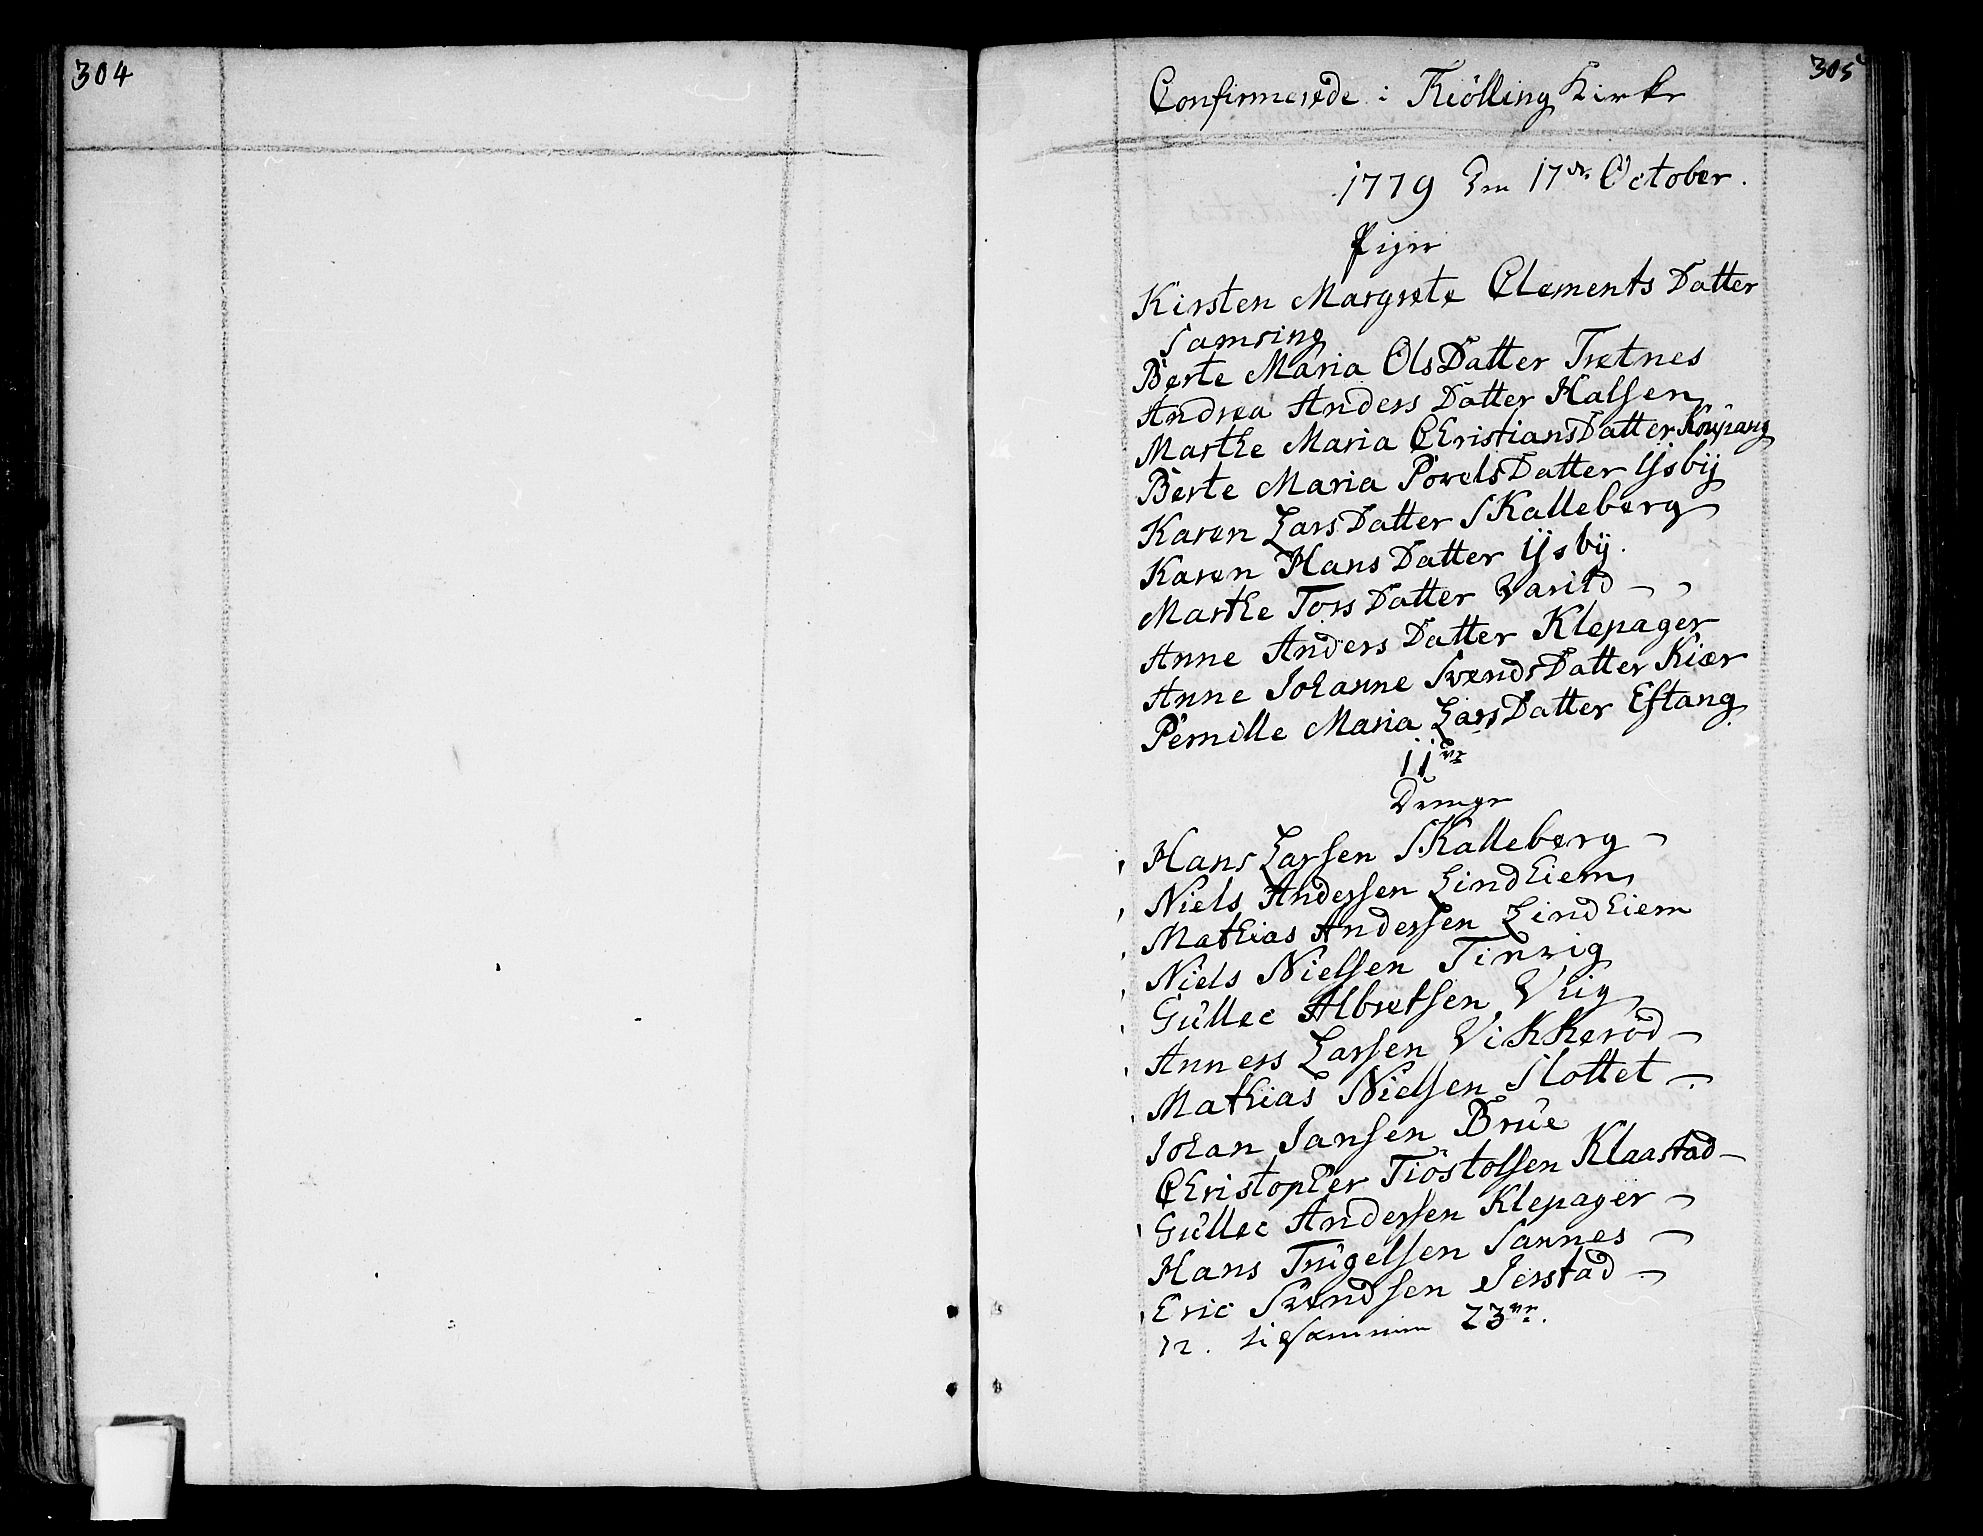 304
305
Confirmerede i Thiölling Kirke
1779 Den 17de October.
Piger
Kirsten Margrete Clements Datter
Samsing
Berte Maria OlsDatter Tretnes
Andrea Anders Datter Halsen
Marthe Maria ChristiansDatter Koupang
Berte Maria PovelsDatter Ysbÿ
Karen LarsDatter Skalleberg
Karen HansDatter Ysbÿ.
Marthe TorsDatter Varild
Anne Anders Datter Klepager
Anne Johanne SvendsDatter Kiær
Pernille Maria LarsDatter Eftang
11ve
Drenge
Hans Larsen Skalleberg
Niels Andersen Lindhiem
Mathias Andersen Lindhiem
Niels Nielsen Tinvig
Gullec Albretsen Vlig
Anners Larsen Vikkeröd
Mathias Nielsen Slottet
Johan Jansen Brue
Christopher Tiöstolsen Klaastad
Gullec Andersen Klepager
Hans Trugelsen Sannes
Eric Svendsen Jerstad
12. tilsammen 23ve.